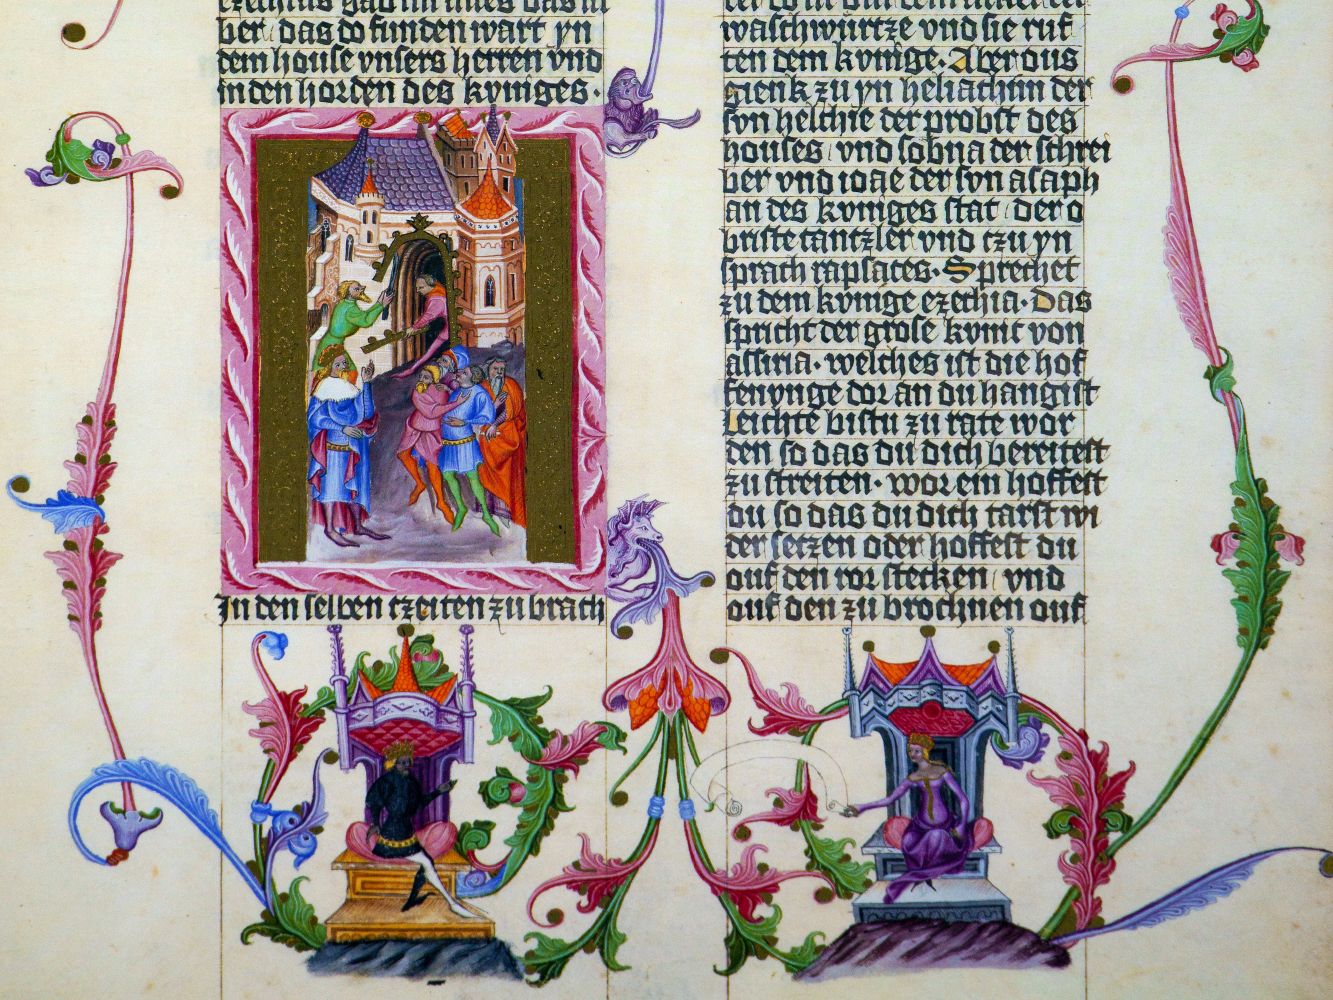 ezechias gab im alles das sil
ber, das do funden wart yn
dem house unsers herren vnd
in den horden des kuniges.
In den selben czeiten zu brach
waschwurtze vnd sie ruf
ten dem kunige. Aber ous
gienk zu yn heliachim der
son helchie der probst des
houses, vnd sobna der schrei
ber vnd ioae der son asaph
an des kuniges stat, der o
briste cantzler, vnd czu yn
sprach rapsaces. Sprechet
zu dem kunige ezechia. Das
spricht der grose kunic von
assiria. welches ist die hof
fenunge dor an du hangist
leichte bistu zu rate wor
den so das du dich bereitest
zu streiten. wor ein hoffest
du so das du dich tarst wi
der setzen oder hoffest du
ouf den ror stecken, vnd
ouf den zu brochnen ouf